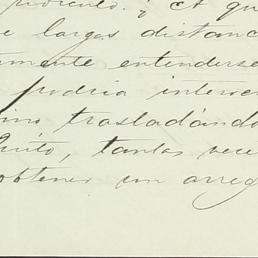 ridículo. ¿ A qu
e largas distanc
mente entenderse
podria interve
ino trasladándo
Quito, tantas vece
obtener un arreg